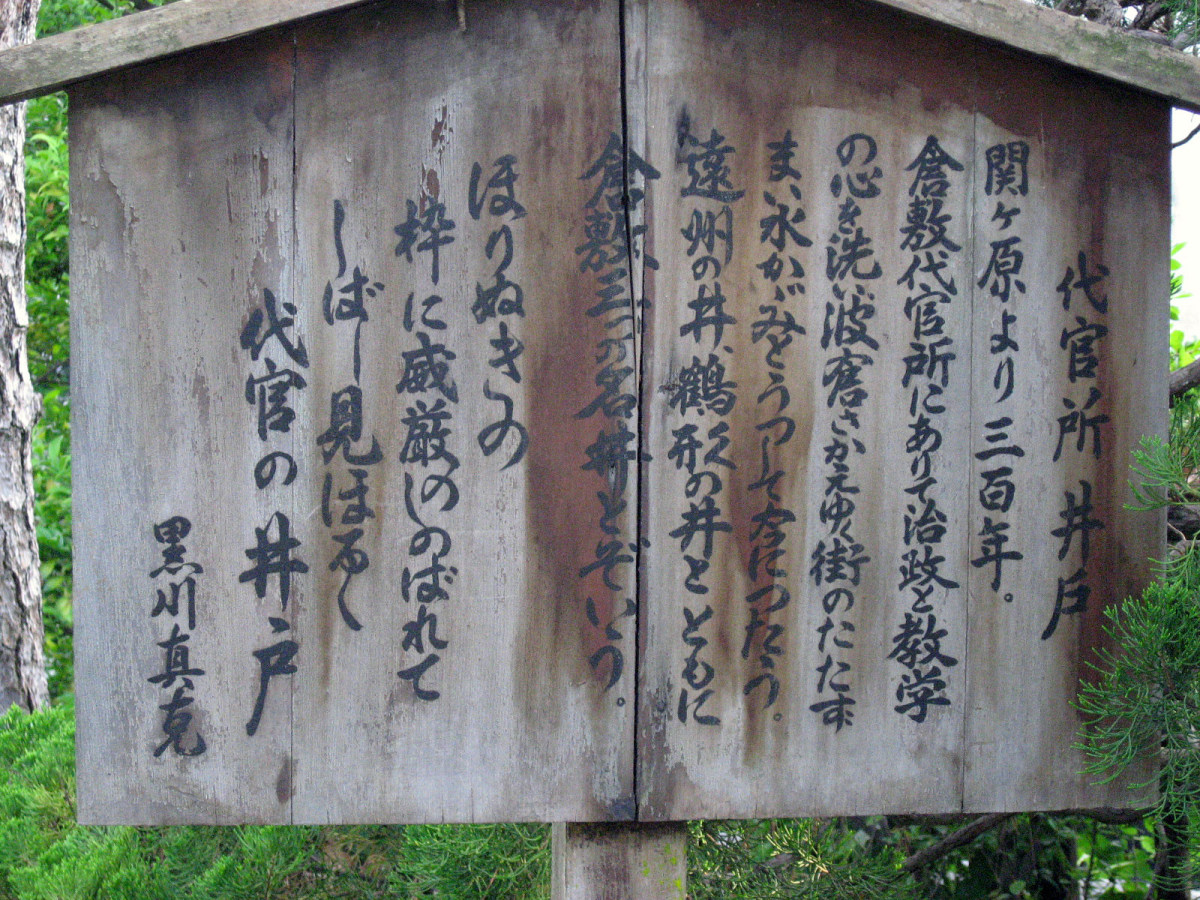 代官所井戸
関ヶ原より三百年。
倉敷代官所にありて治政と教学
の心を洗い波窓さかえゆく街のたたず
まい永かゞみとうつして今につたう。
遠州の井、鶴形の井とともに
倉敷三つの名井とぞいう。
ほりぬきの
枠に威厳のしのばれて
しばし見ほるゝ
代官の井戸
黒川真克